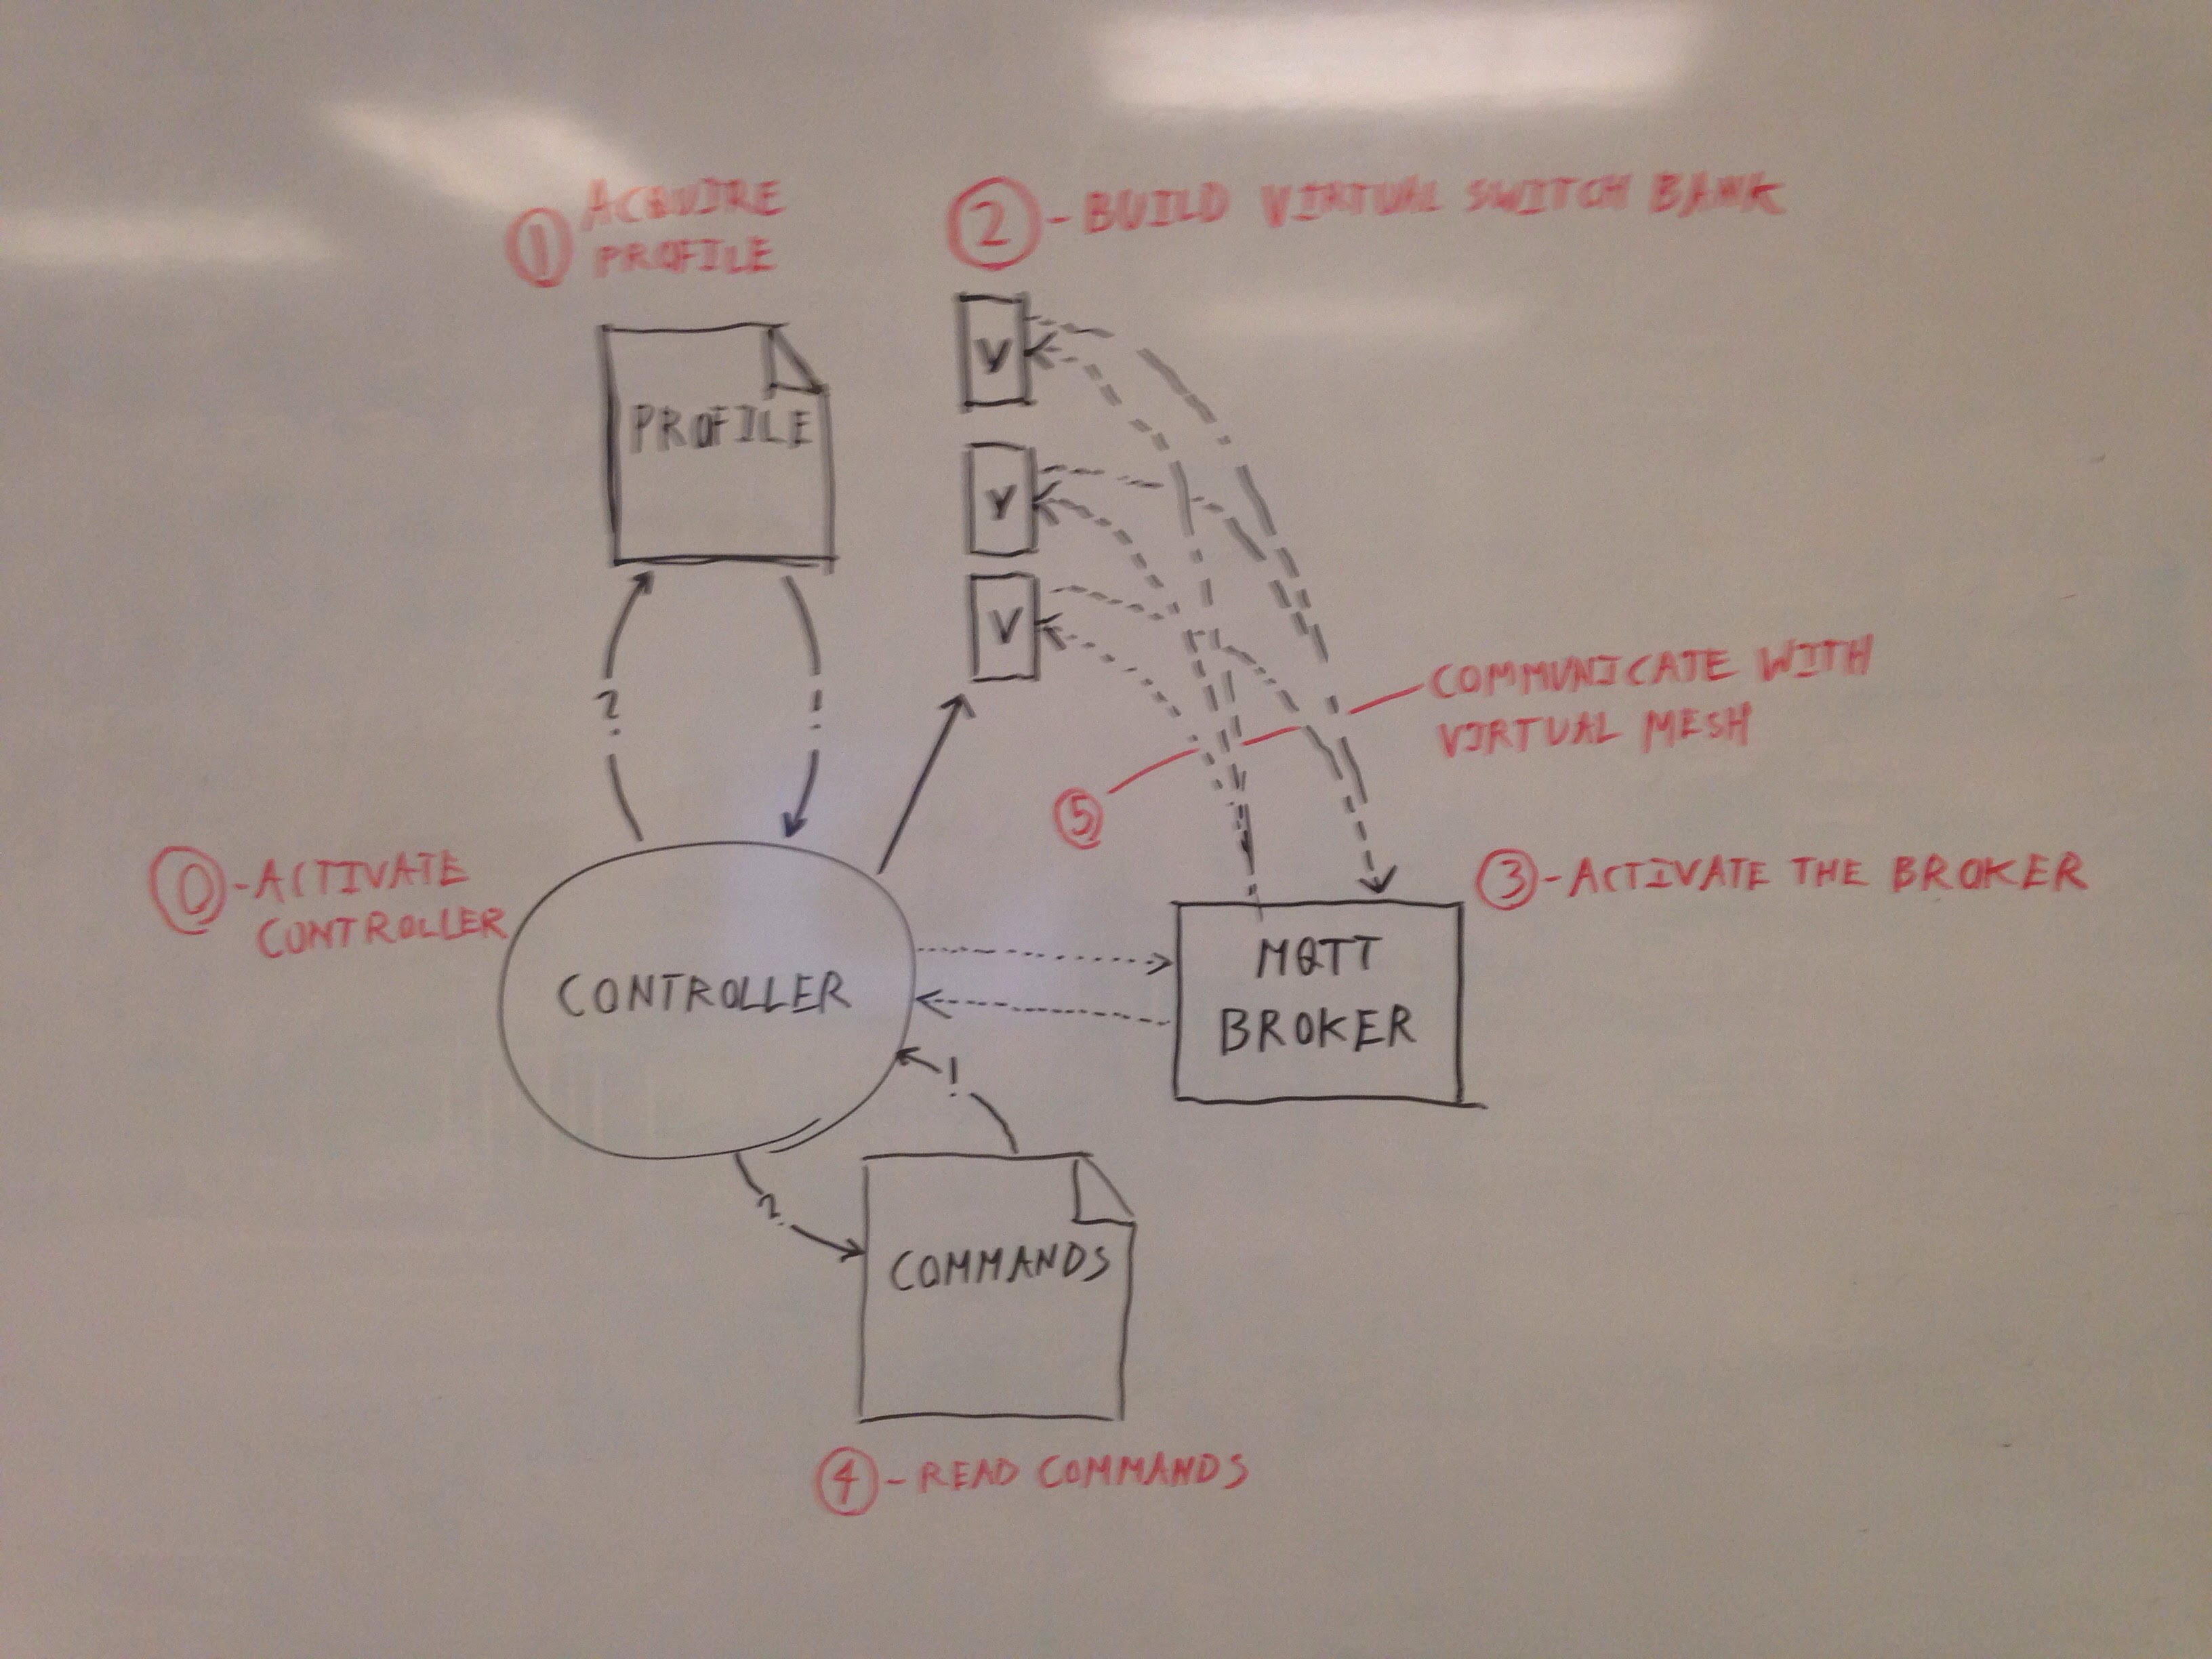 ① ACQUIRE
PROFILE
② - BUILD VIRTUAL SWITCH BANK
PROFILE
V
V
V
?
!
COMMUNICATE WITH
VIRTUAL MESH
⑤
⓪ - ACTIVATE
CONTROLLER
③ - ACTIVATE THE BROKER
CONTROLLER
MQTT
BROKER
!
?
COMMANDS
④ - READ COMMANDS